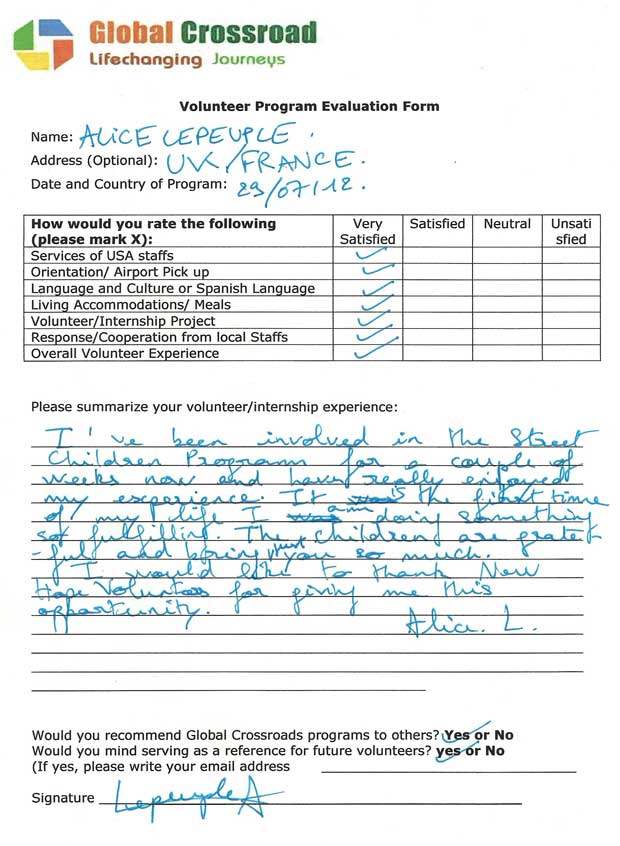 Global Crossroad
Lifechanging Journeys
Volunteer Program Evaluation Form
Name: ALICE LEPEUPLE.
Address (Optional): UK/FRANCE.
Date and Country of Program: 29/07/12.
How would you rate the following Very Satisfied Neutral Unsati
(please mark X): Satisfied sfied
Services of USA staffs ✓
Orientation/ Airport Pick up ✓
Language and Culture or Spanish Language ✓
Living Accommodations/ Meals ✓
Volunteer/Internship Project ✓
Response/Cooperation from local Staffs ✓
Overall Volunteer Experience ✓
Please summarize your volunteer/internship experience:
I've been involved in the Street
Children Program for a couple of
weeks now and have really enjoyed
my experience. It was is the first time
of my life I was am doing something
so fulfilling. The children are grate
-full and bring you so much.
I would like to thank New
Hope Voluntors for giving me this
opportunity. Alice. L.
Would you recommend Global Crossroads programs to others? Yes or No
Would you mind serving as a reference for future volunteers? yes or No
(If yes, please write your email address
Signature Lepeuple A